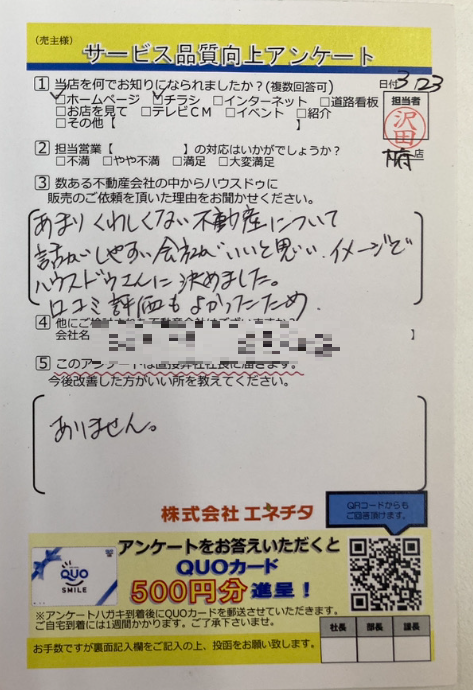 (売主様)
サービス品質向上アンケート
1 当店を何でお知りになられましたか?(複数回答可)
日付 3/23
☑ホームページ ☑チラシ □インターネット □道路看板
□お店を見て □テレビCM □イベント □紹介
□その他【 】
担当者
沢田
店
2 担当営業【 】の対応はいかがでしょうか?
□不満 □やや不満 □満足 □大変満足
3 数ある不動産会社の中からハウスドゥに
販売のご依頼を頂いた理由をお聞かせください。
あまりくわしくない不動産について
話がしやすい会社がいいと思い、イメージで
ハウスドゥさんに決めました。
口コミ評価もよかったため.
4 他にご検討された不動産会社はございますか?
会社名 】
5 このアンケートは直接弊社社長に届きます。
今後改善した方がいい所を教えてください。
ありません。
株式会社 エネチタ
QRコードからも
ご回答頂けます。
アンケートをお答えいただくと
QUOカード
500円分進呈!
QUO
SMILE
※アンケートハガキ到着後にQUOカードを郵送させていただきます。
ご自宅到着には1週間かかります。ご了承下さいませ。
お手数ですが裏面記入欄をご記入の上、投函をお願い致します。
社長 部長 課長